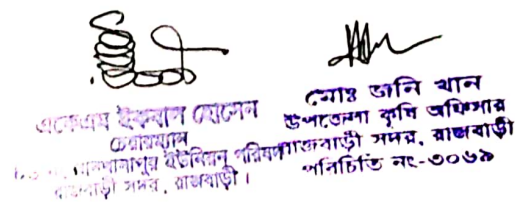 একেএম ইকবাল হোসেন
চেয়ারম্যান
ইউনিয়ন পরিষদ
রাজবাড়ী সদর, রাজবাড়ী।
মোঃ জনি খান
উপজেলা কৃষি অফিসার
রাজবাড়ী সদর, রাজবাড়ী
পরিচিতি নং-৩০৬৯